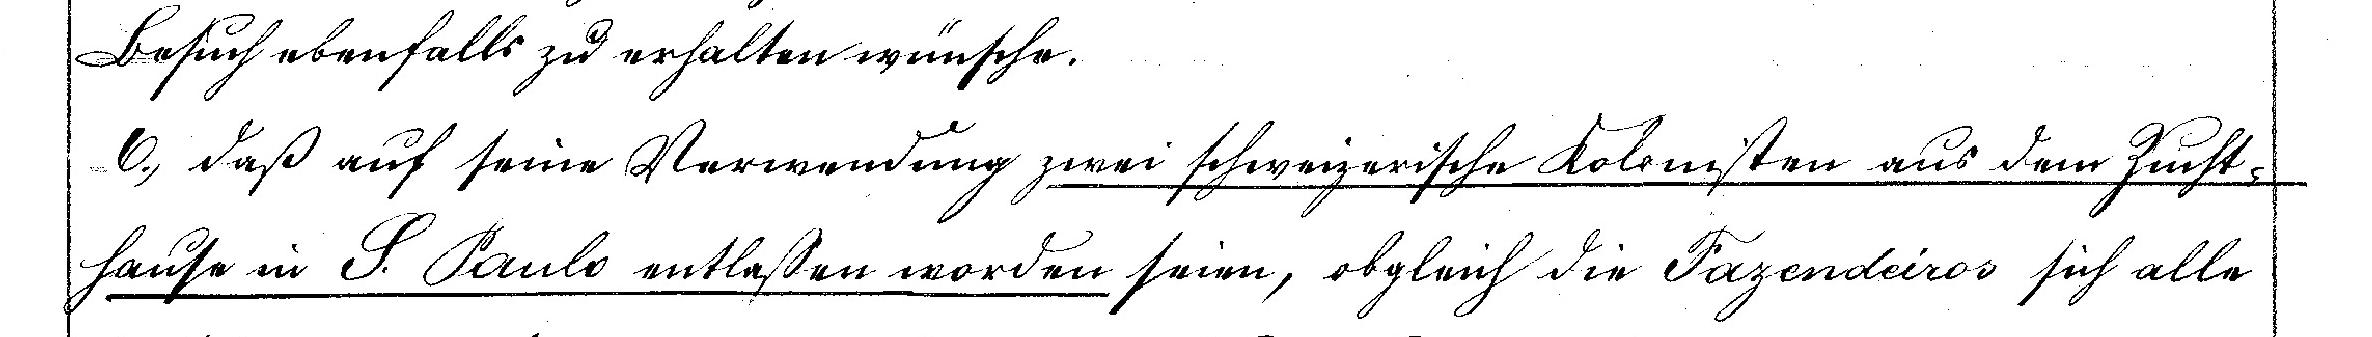 Besuch ebenfalls zu erhalten wünsche.
6., daß auf seine Verwendung zwei schweizerische Kolonisten aus dem Zucht-
hause in S. Paulo entlassen worden seien, obgleich die Fazendeiros sich alle